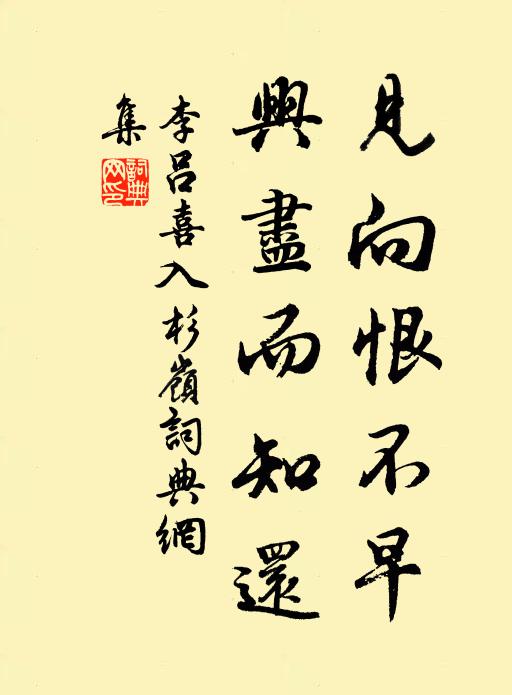 見向恨不早
興盡而知還
李呂喜入杉嶺詞典網
集
詞典
网印